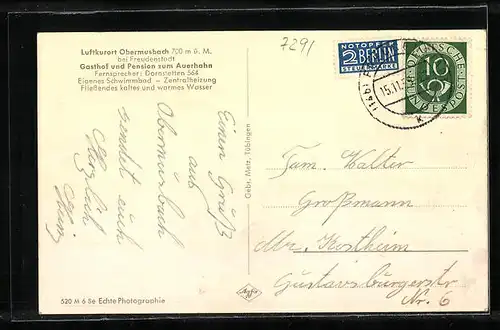 Luftkurort Obermusbach 700 m ü. M.
bei Freudenstadt
Gasthof und Pension zum Auerhahn
Fernsprecher: Dornstetten 564
Eigenes Schwimmbad – Zentralheizung
Fließendes kaltes und warmes Wasser
7291
NOTOPFER
2 BERLIN
STEUERMARKE
DEUTSCHE
10
15.11.
Einen Gruß
aus
Obermusbach
sendet euch
Herzlich
Heinz
Gebr. Metz, Tübingen
Fam. Walter
Großmann
Mz. Kostheim
Gustavsburgerstr
Nr. 6
Agfa
520 M 6 Be Echte Photographie